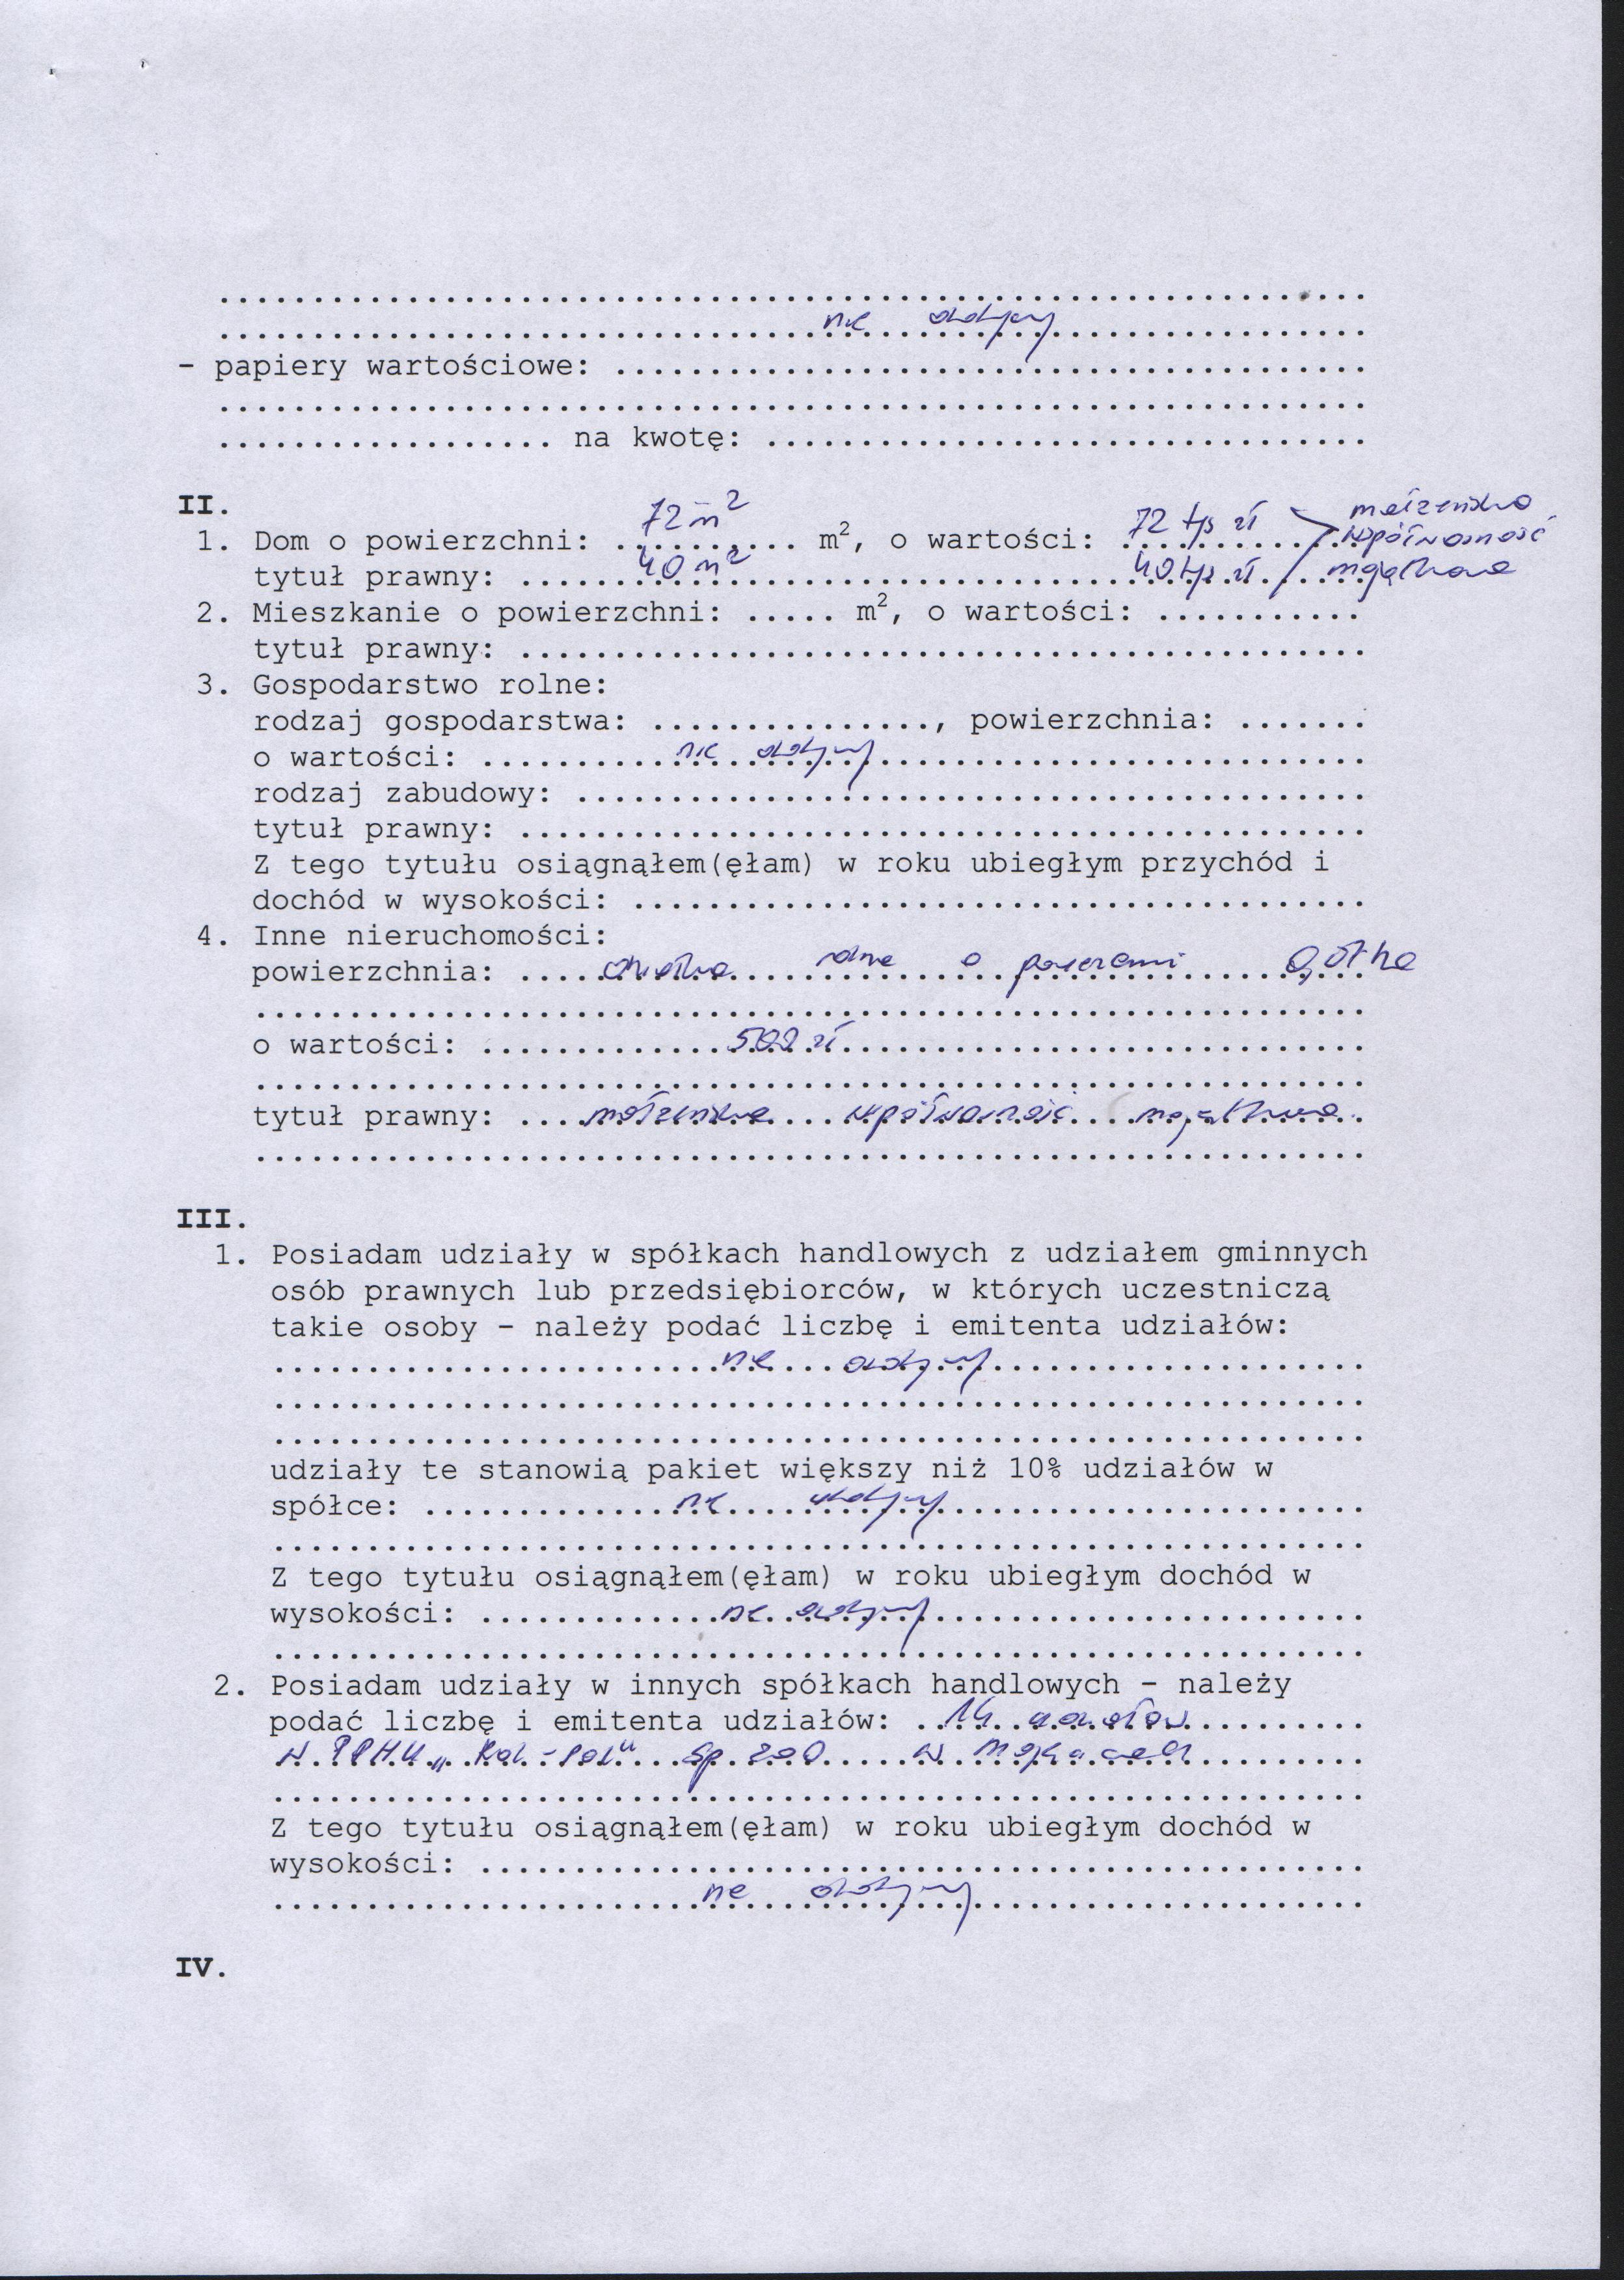 nie dotyczy
- papiery wartościowe: ........................................
........................................
.................. na kwotę: ................................
II.
72 m²   72 tys zł   małżeńska
1. Dom o powierzchni: .......... m², o wartości: ............. współwłasność
tytuł prawny: ...... 40 m² ...... 40 tys zł ...... majątkowa
2. Mieszkanie o powierzchni: ..... m², o wartości: ...........
tytuł prawny: .............................................
3. Gospodarstwo rolne:
rodzaj gospodarstwa: ..............., powierzchnia: .......
o wartości: .......... nie dotyczy ..........................
rodzaj zabudowy: ..........................................
tytuł prawny: .............................................
Z tego tytułu osiągnąłem(ęłam) w roku ubiegłym przychód i
dochód w wysokości: .......................................
4. Inne nieruchomości:
powierzchnia: .... działka rolna o powierzchni 0,07 ha
o wartości: ............. 500 zł ............................
tytuł prawny: .... małżeńska .... współwłasność .... majątkowa ..
III.
1. Posiadam udziały w spółkach handlowych z udziałem gminnych
osób prawnych lub przedsiębiorców, w których uczestniczą
takie osoby - należy podać liczbę i emitenta udziałów:
........................ nie .... dotyczy ....................
udziały te stanowią pakiet większy niż 10% udziałów w
spółce: ............. nie .... dotyczy .......................
Z tego tytułu osiągnąłem(ęłam) w roku ubiegłym dochód w
wysokości: ............. nie dotyczy .......................
2. Posiadam udziały w innych spółkach handlowych - należy
podać liczbę i emitenta udziałów: .. 14 udziałów ..........
w PPHU „Rol-Pol" Sp. zoo w
Z tego tytułu osiągnąłem(ęłam) w roku ubiegłym dochód w
wysokości: ...............................................
....................... nie dotyczy .....................
IV.